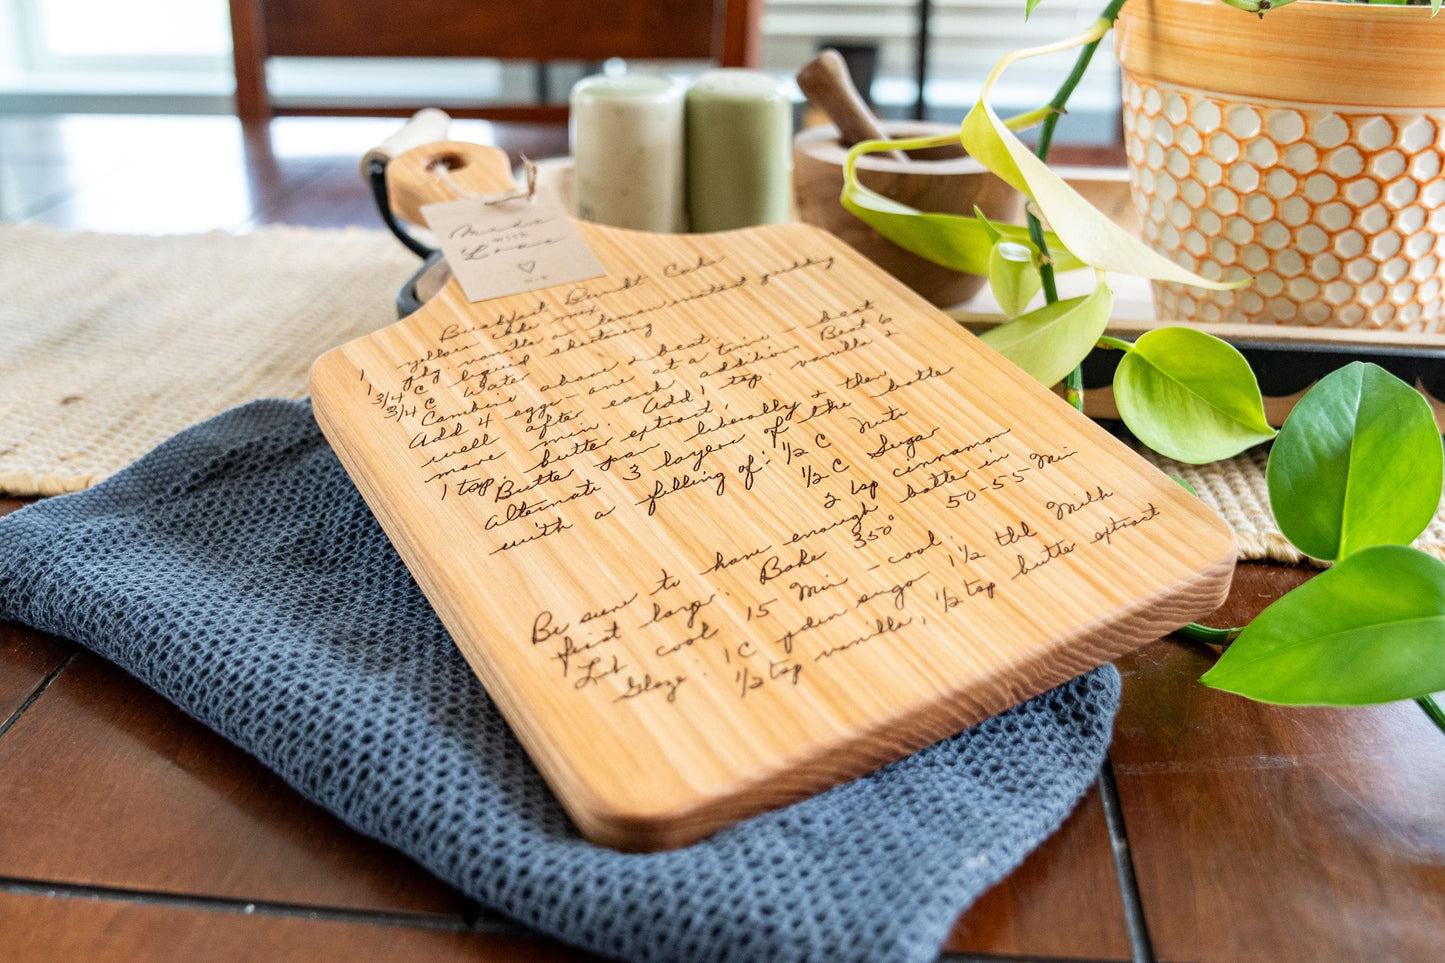 Made
with
Love
Breakfast Bundt Cake
1 yellow cake mix
1 pkg vanilla or lemon instant pudding
3/4 C liquid shortening
3/4 C Water
Combine above & beat
Add 4 eggs - one at a time - beat
well after each addition. Beat 6
more min. Add 1 tsp. vanilla &
1 tsp. butter extract.
Butter pan liberally & then
alternate 3 layers of the batter
with a filling of: 1/2 C Nuts
1/2 C Sugar
2 tsp cinnamon
Be sure to have enough batter in
first large. Bake 350° 50-55 Min
Let cool 15 Min - cool.
Glaze: 1 C pdwn sugar 1 1/2 tbl Milk
1/2 tsp vanilla, 1/2 tsp butter extract